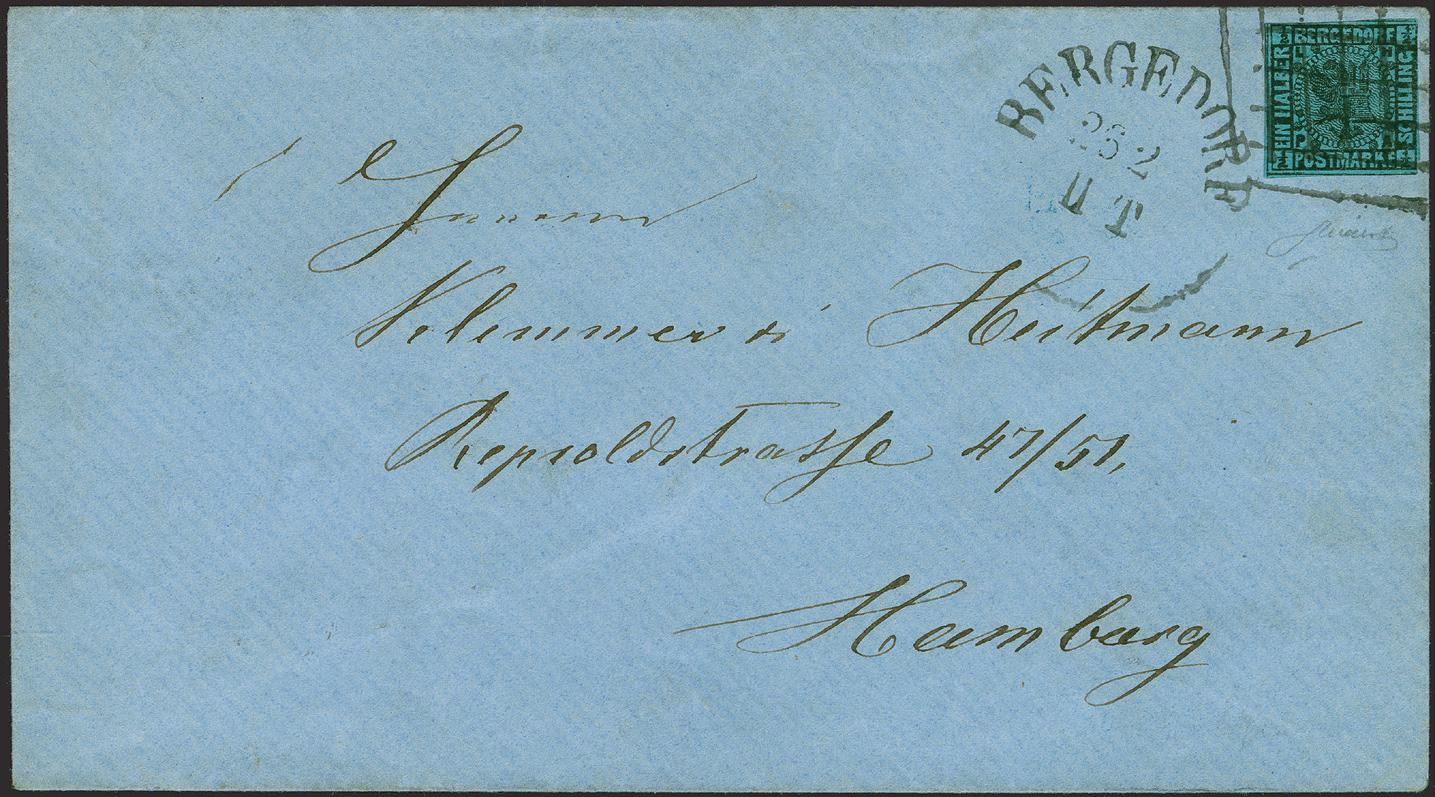 BERGEDORF
26 2
II T
½ BERGEDORF ½
EIN HALBER
SCHILLING
½ POSTMARKE ½
Herren
Klemmer & Heitmann
Repsoldstrasse 47/51,
Hamburg